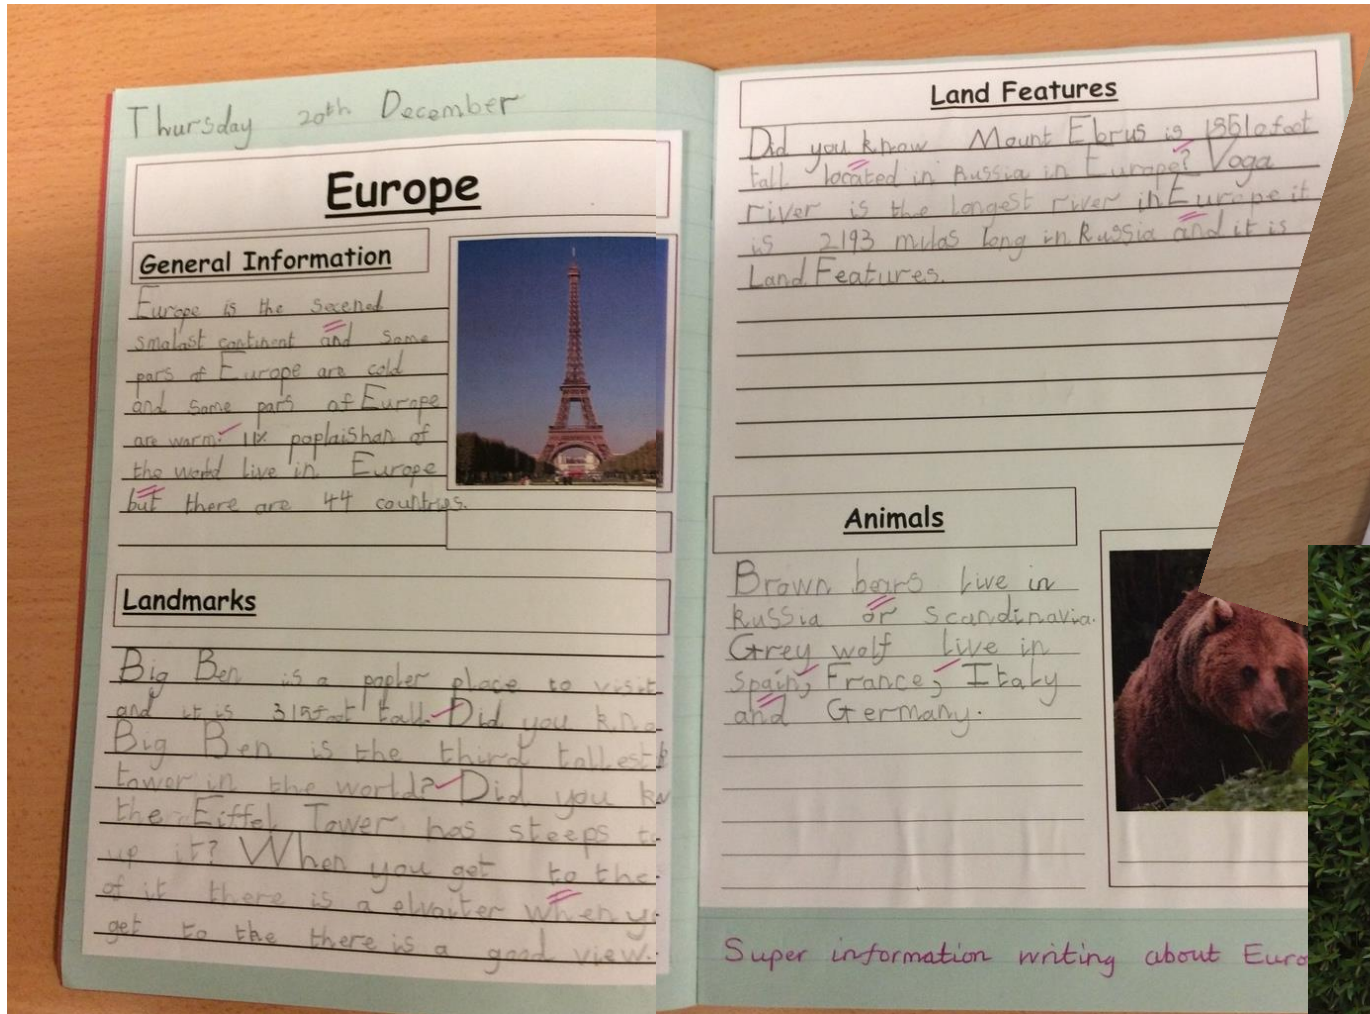 Thursday 20th December
Europe
General Information
Europe is the secened
smalast continent and same
pars of Europe are cold
and same pars of Europe
are warm. 11% poplaishan of
the world live in Europe
but there are 44 countries.
Landmarks
Big Ben is a papler place to visit
and it is 315foot tall. Did you kno
Big Ben is the third tallest
tower in the world? Did you kn
the Eiffel Tower has steeps to
up it? When you get to the
of it there is a elvaiter when y
get to the the there is a good view.
Land Features
Did you know Mount Ebrus is foot
tall located in Russia in Europe? Voga
river is the longest river in Europe it
is 2193 milas long in Russia and it is
Land Features.
Animals
Brown bears live in
Russia or scandinavia.
Grey wolf live in
Spain, France, Italy
and Germany.
Super information writing about Euro